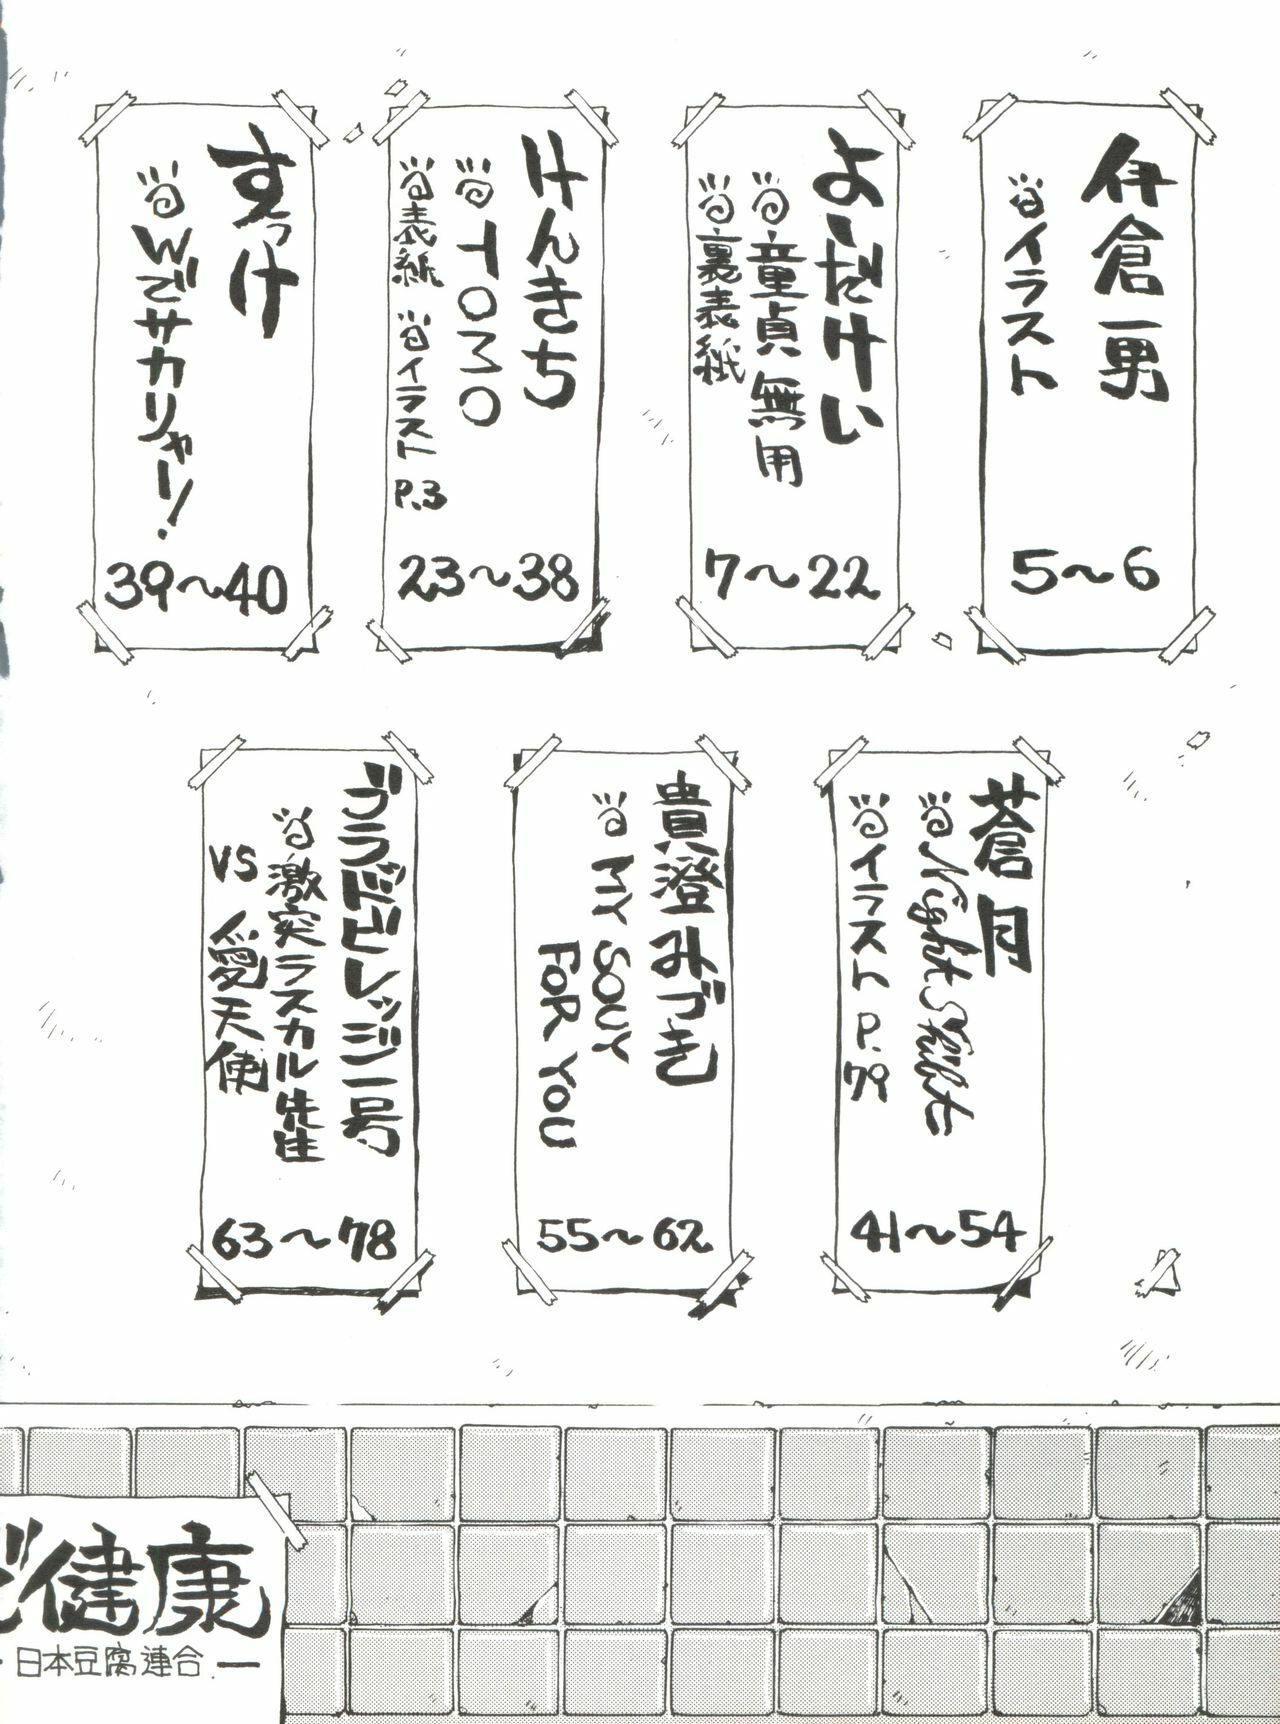 伊倉一男
イラスト
5〜6
よーだけい
童貞無用
裏表紙
7〜22
けんきち
TOMO
表紙 イラスト P.3
23〜38
すっけ
Wでサカリャー!
39〜40
蒼月
Night Shift
イラスト P.79
41〜54
貴澄みづき
MY SOUY
FOR YOU
55〜62
ブラドビレッジ一号
激突ラスカル先生
VS 愛天使
63〜78
ビ健康
日本豆腐連合 ー